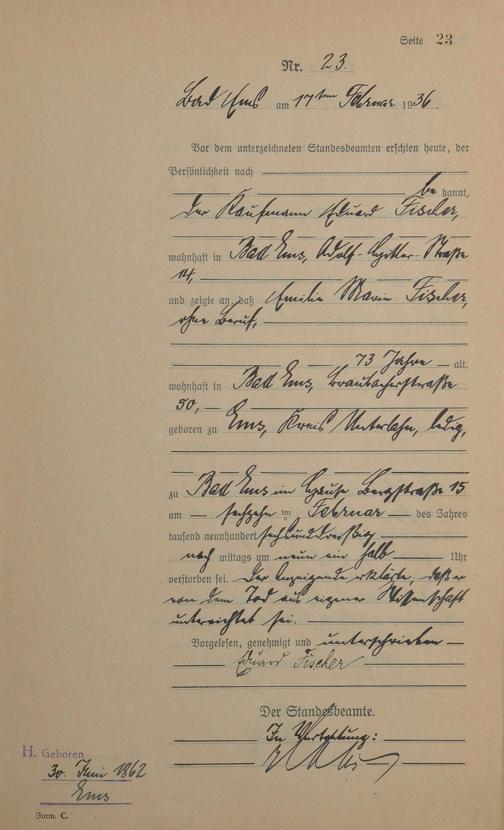 Seite 23
Nr. 23.
Bad Ems am 17ten Februar 1936
Vor dem unterzeichneten Standesbeamten erschien heute, der
Persönlichkeit nach
be kannt,
der Kaufmann Eduard Fischer,
wohnhaft in Bad Ems, Adolf-Hitler-Straße
14,
und zeigte an, daß Emilie Marie Fischer,
ohne Beruf,
73 Jahre alt,
wohnhaft in Bad Ems, Braubacherstraße
50,
geboren zu Ems, Kreis Unterlahn, ledig,
zu Bad Ems im Hause Bergstraße 15
am sechzehn ten Februar des Jahres
tausend neunhundert sechsunddreißig
nach mittags um neun ein halb Uhr
verstorben sei. Der Anzeigende erklärte, daß er
von dem Tod aus eigener Wissenschaft
unterrichtet sei.
Vorgelesen, genehmigt und unterschrieben
Eduard Fischer
Der Standesbeamte.
In Vertretung:
H. Geboren
30. Juni 1862
Ems
Form. C.